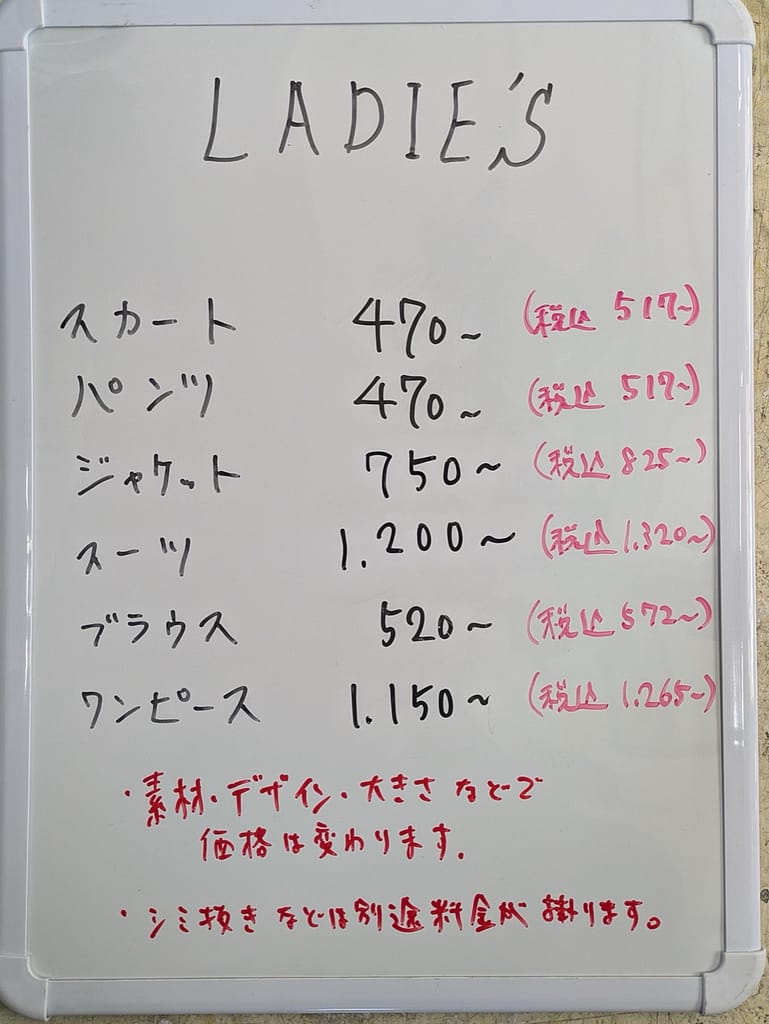 LADIE'S
スカート 470~ (税込 517~)
パンツ 470~ (税込 517~)
ジャケット 750~ (税込 825~)
スーツ 1.200~ (税込 1.320~)
ブラウス 520~ (税込 572~)
ワンピース 1.150~ (税込 1.265~)
・素材・デザイン・大きさなどで
価格は変わります.
・シミ抜きなどは別途料金が掛ります。